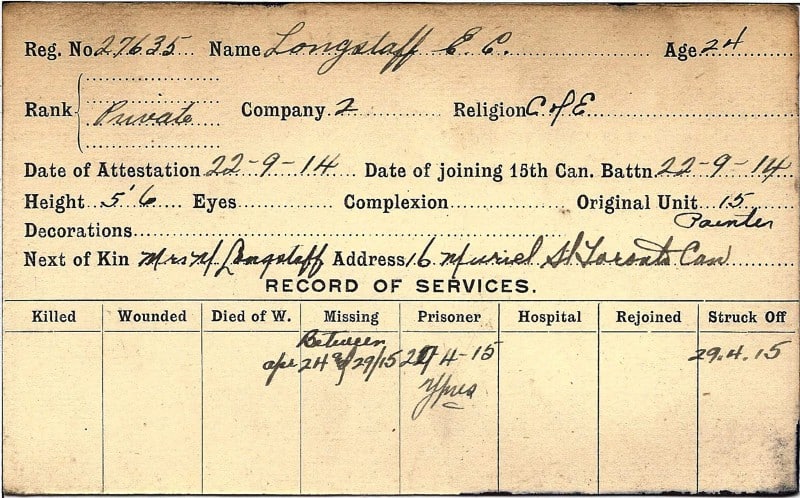 Reg. No 27635 Name Longstaff E. C. Age 24
Rank Private Company 2 Religion C of E
Date of Attestation 22-9-14 Date of joining 15th Can. Battn. 22-9-14
Height 5'6 Eyes Complexion Original Unit 15
Decorations Painter
Next of Kin Mrs Longstaff Address 16 Muriel St Toronto Can
RECORD OF SERVICES.
Killed Wounded Died of W. Missing Prisoner Hospital Rejoined Struck Off
Between
apr 24 29/15 4-15 29.4.15
Ypres